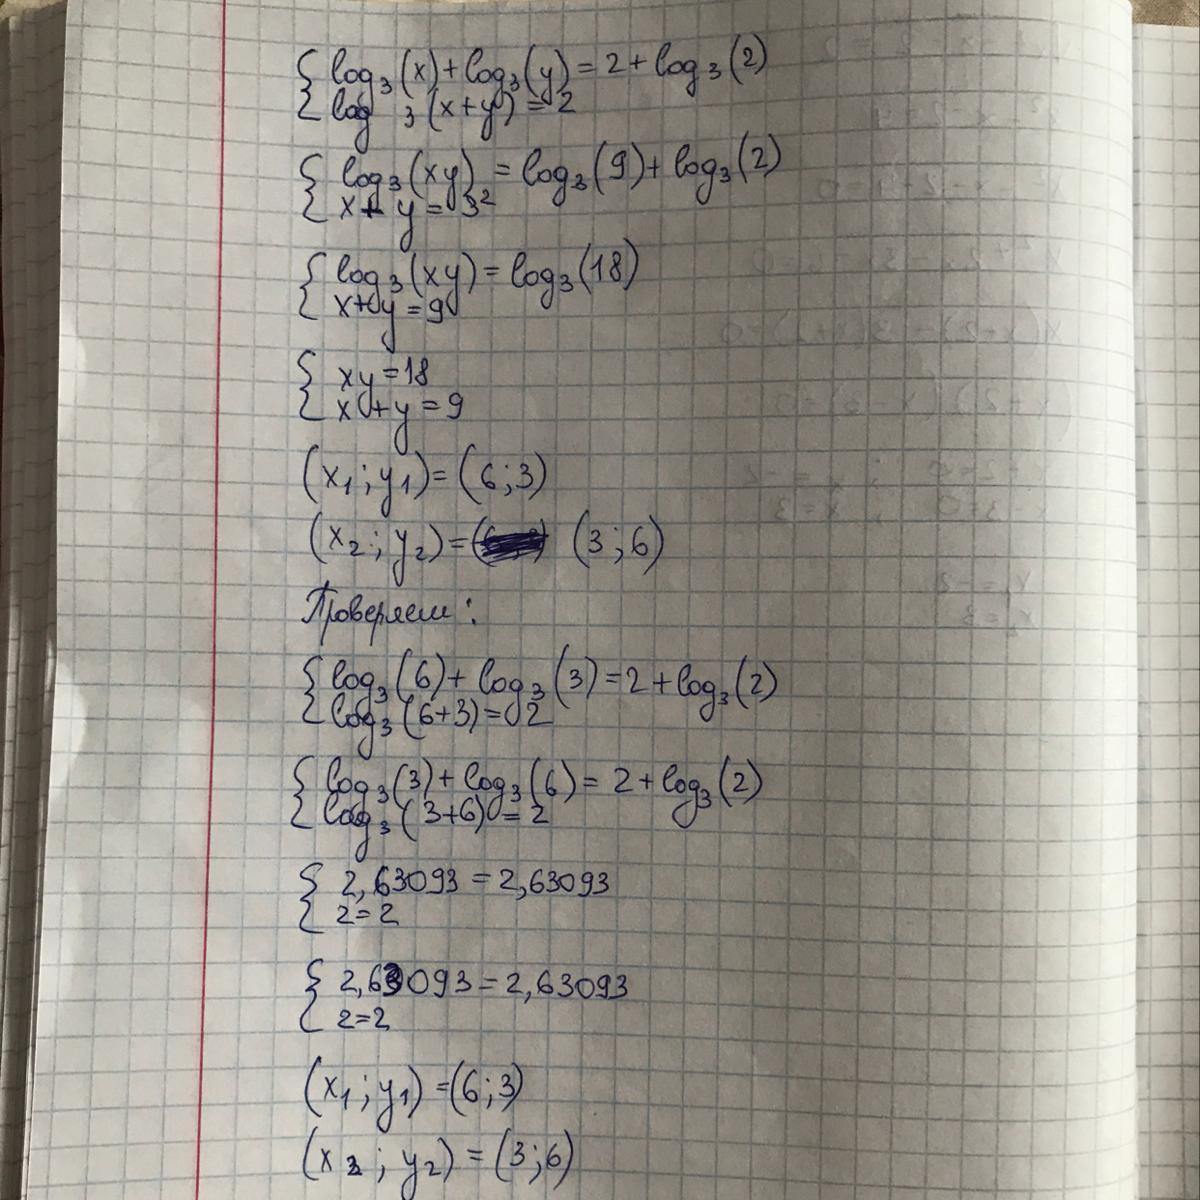 log₃(x)+log₃(y)=2+log₃(2)
log ₃(x+y)=2
log₃(xy)=log₃(9)+log₃(2)
x+y=3²
log₃(xy)=log₃(18)
x+y=9
xy=18
x+y=9
(x₁;y₁)=(6;3)
(x₂;y₂)= (3;6)
Проверяем:
log₃(6)+log₃(3)=2+log₃(2)
log₃(6+3)=2
log₃(3)+log₃(6)=2+log₃(2)
log₃(3+6)=2
2,63093=2,63093
2=2
2,63093=2,63093
2=2
(x₁;y₁)=(6;3)
(x₂;y₂)=(3;6)